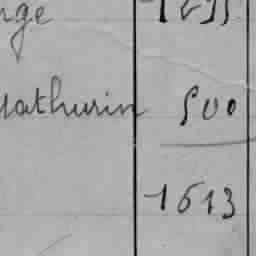 nge
Mathurin 500
1613